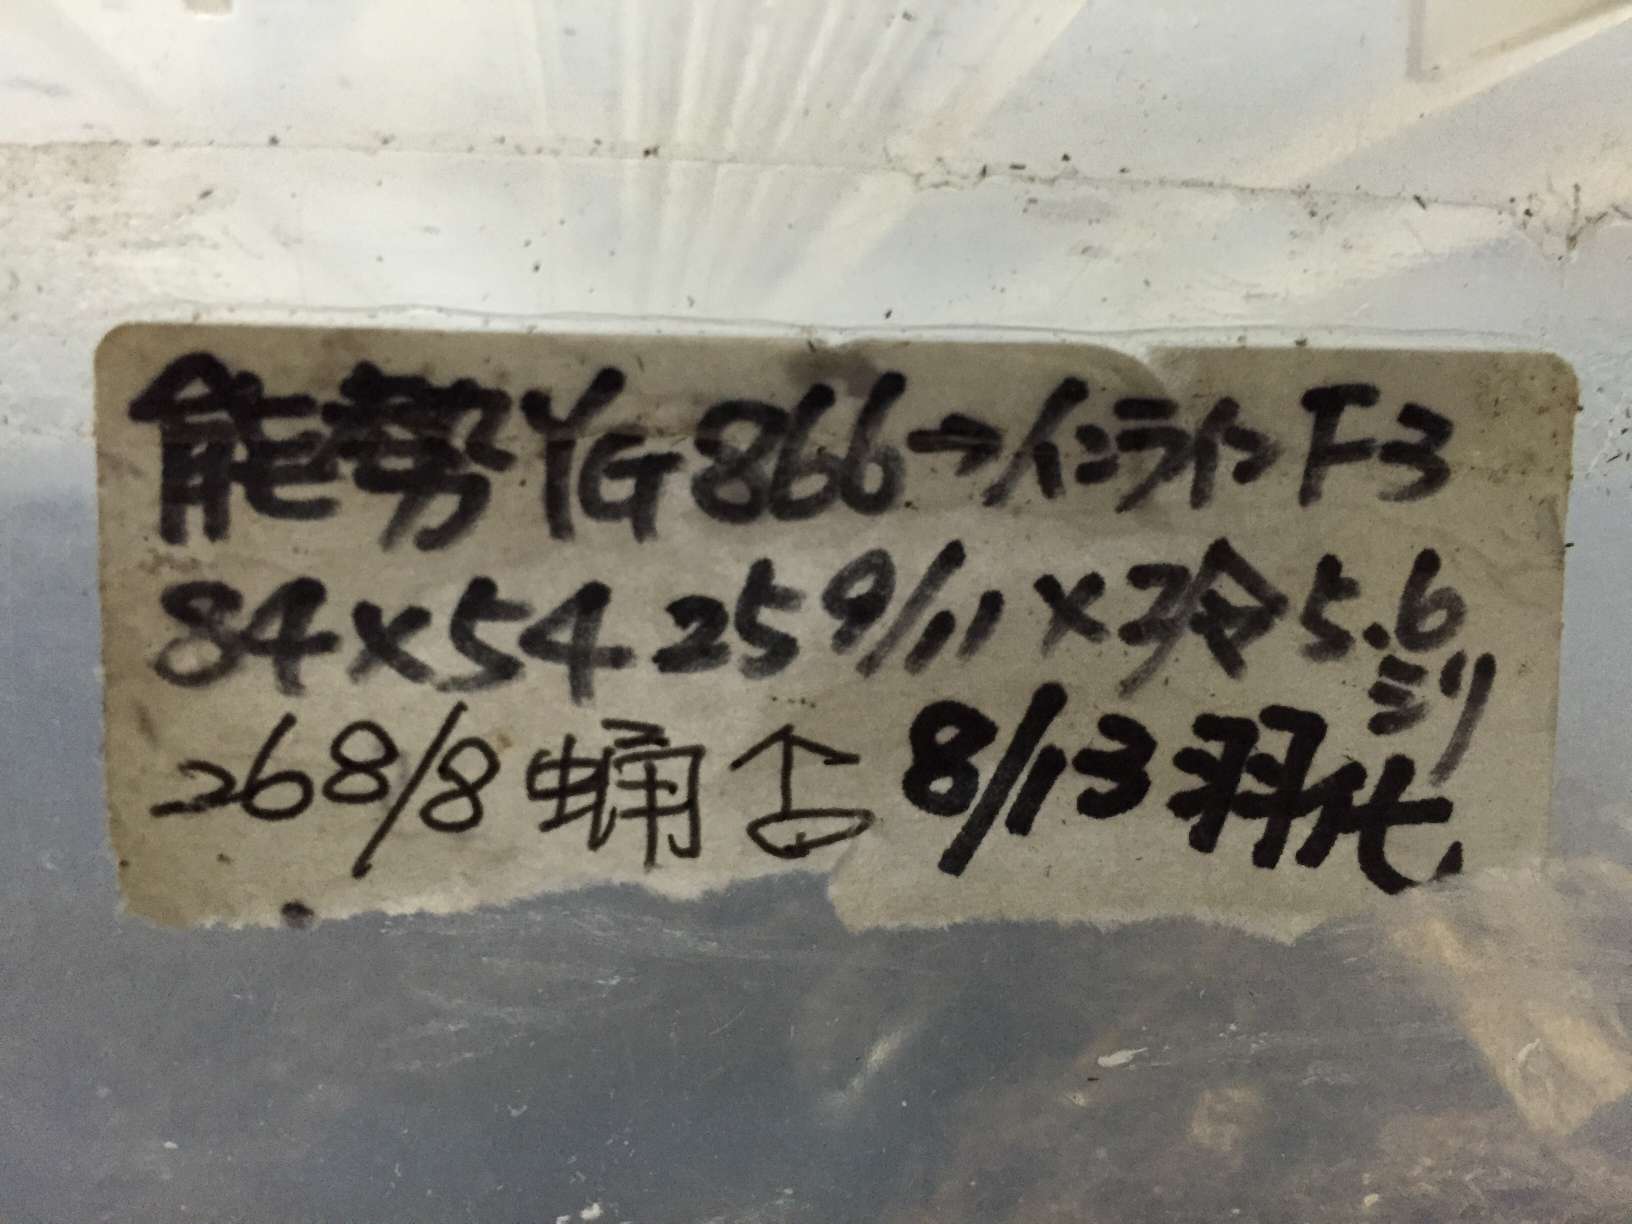 能勢YG866→インラインF3
84×54 25 9/11 ×冷5.6ミリ
26 8/8 蛹 ↑ 8/13 羽化